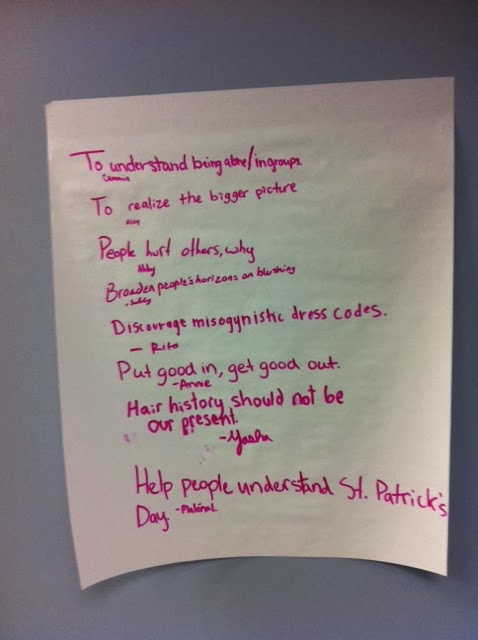 To understand being alone/in groups.
To realize the bigger picture
Abby
People hurt others, why
Abby
Broaden people's horizons on blushing
Discourage misogynistic dress codes.
— Rita
Put good in, get good out.
-Annie
Hair history should not be
our present.
-Yasha
Help people understand St. Patrick's
Day.